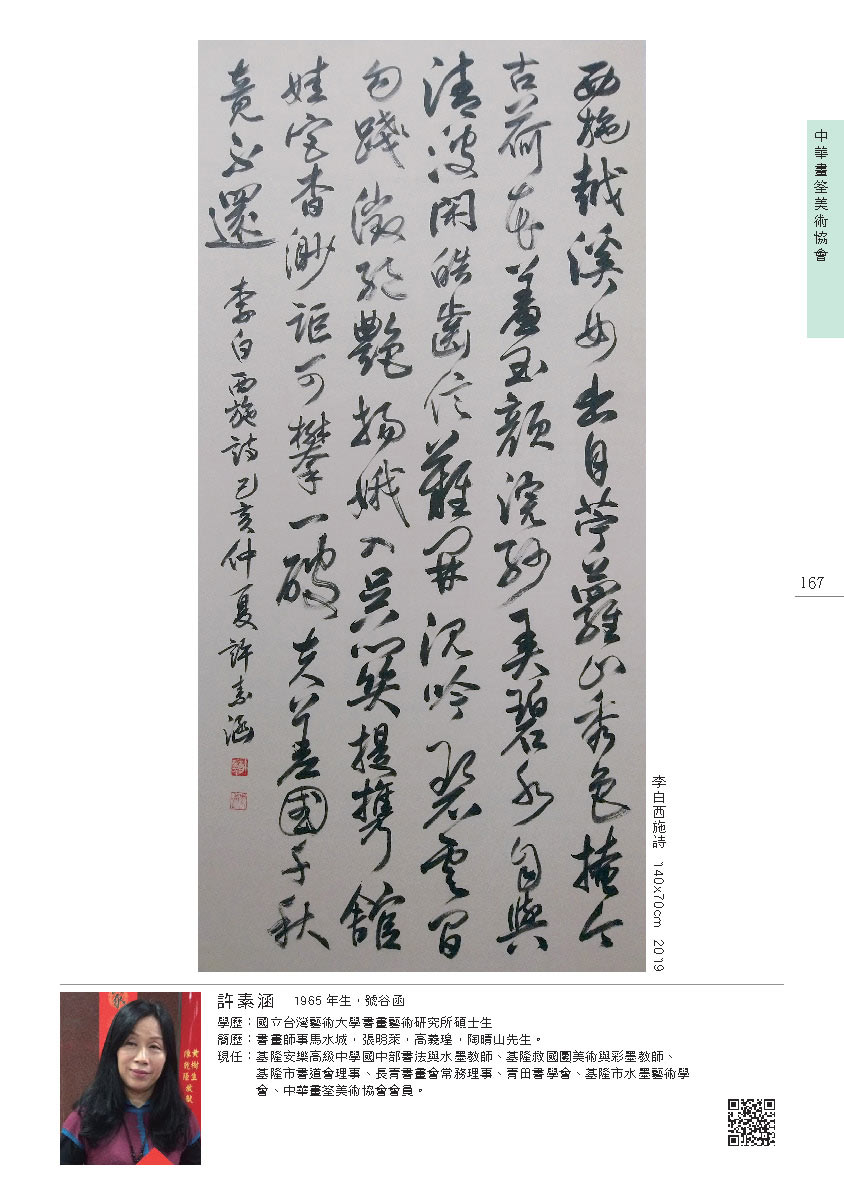 中華畫筌美術協會
西施越溪女出自苧蘿山秀色掩今
古荷花羞玉顏浣紗弄碧水自與
清波閑皓齒信難開沈吟碧雲間
句踐徵絕艷揚娥入吳關提攜館
娃宮杳渺詎可攀一破夫差國千秋
竟不還 李白西施詩己亥仲夏許素涵
167
李白西施詩 140x70cm 2019
許素涵 1965 年生，號谷函
學歷：國立台灣藝術大學書畫藝術研究所碩士生
簡歷：書畫師事馬水城，張明萊，高義瑝，陶晴山先生。
現任：基隆安樂高級中學國中部書法與水墨教師、基隆救國團美術與彩墨教師、
基隆市書道會理事、長青書畫會常務理事、青田書學會、基隆市水墨藝術學
會、中華畫筌美術協會會員。